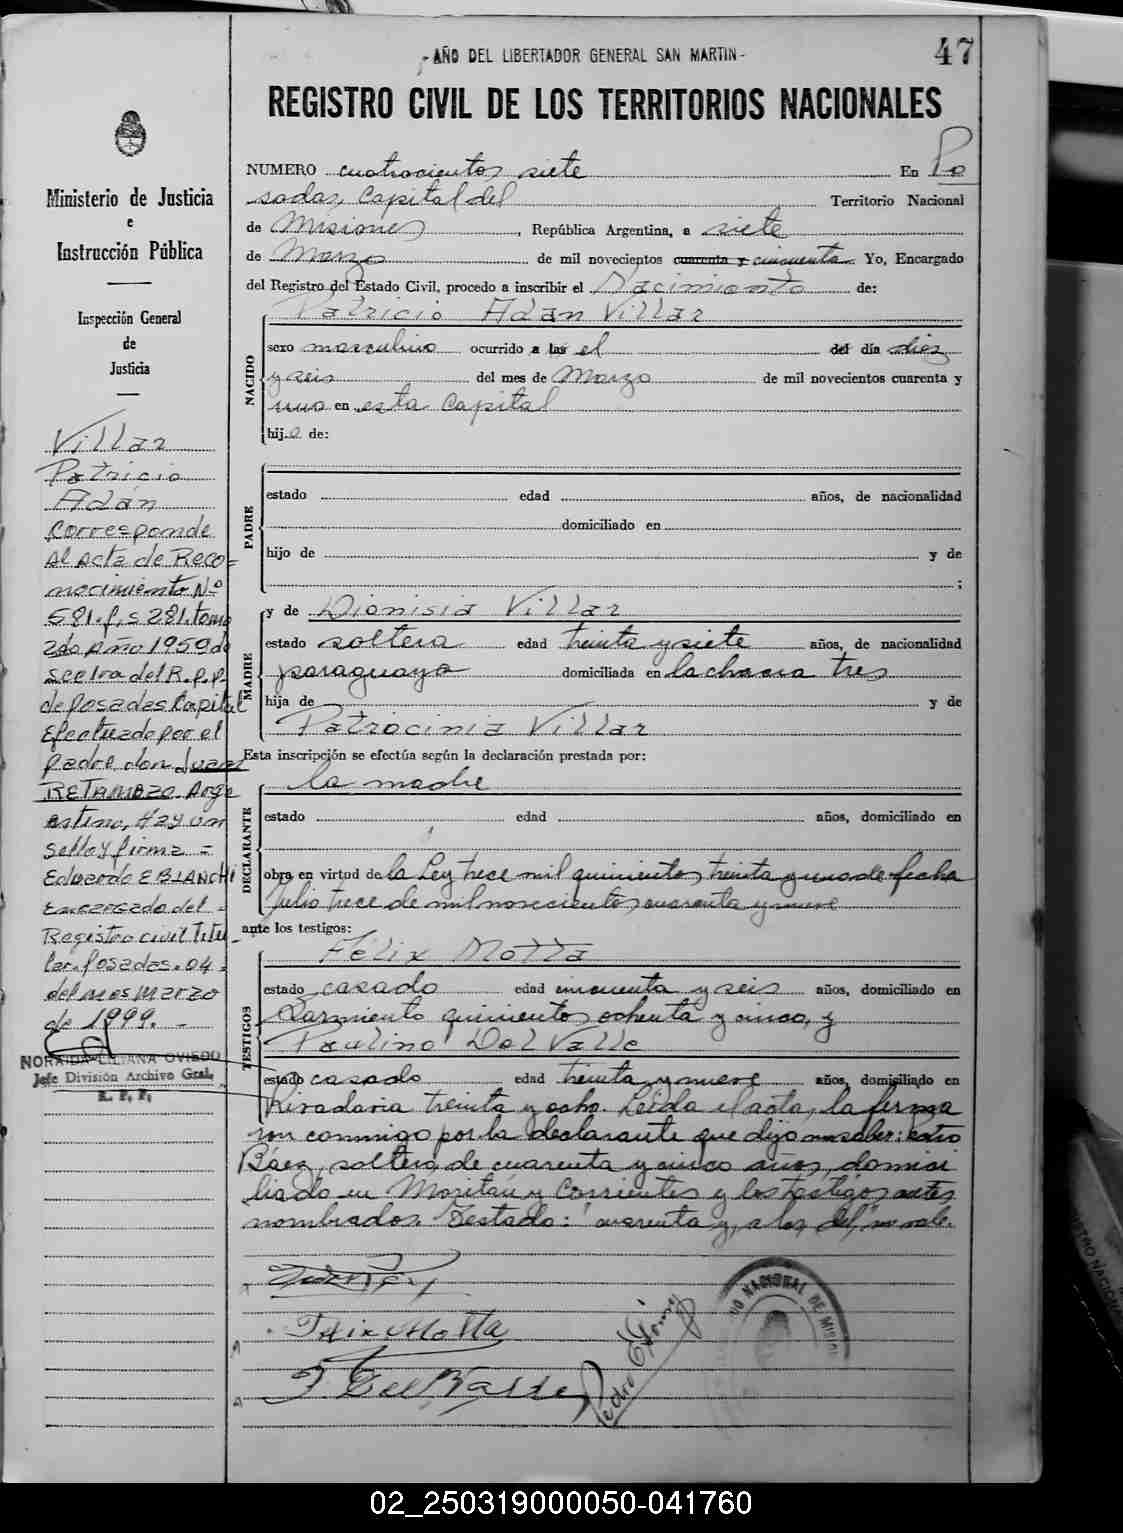 - AÑO DEL LIBERTADOR GENERAL SAN MARTIN -
47
REGISTRO CIVIL DE LOS TERRITORIOS NACIONALES
Ministerio de Justicia
e
Instrucción Pública
Inspección General
de
Justicia
Villar
Patricio
Adán
Corresponde
al acta de Reco=
nocimiento Nº
581. f. s 281. tomo
2do año 1959 de
secc 1ra del R.p.p.
de Posadas Capital
Efectuado por el
padre don Juan
RETAMOZO Arge
ntino, Hay un
sello y firma =
Eduardo E BIANCHI
Encargado del
Registro civil Titu
lar. Posadas. 04
del mes Marzo
de 1999. -
NORAIDA LILIANA OVIEDO
Jefe División Archivo Gral.
R. P. P.
NUMERO cuatrocientos siete En Po
sadas, Capital del Territorio Nacional
de Misiones, República Argentina, a siete
de Marzo de mil novecientos cuarenta y cincuenta. Yo, Encargado
del Registro del Estado Civil, procedo a inscribir el Nacimiento de:
NACIDO
Patricio Adán Villar
sexo masculino ocurrido a las el del día diez
y seis del mes de Marzo de mil novecientos cuarenta y
uno en esta Capital
hijo de:
PADRE
estado edad años, de nacionalidad
domiciliado en
hijo de y de
;
MADRE
y de Dionisia Villar
estado soltera edad treinta y siete años, de nacionalidad
paraguaya domiciliada en la chacra tres
hija de y de
Patrocinia Villar
Esta inscripción se efectúa según la declaración prestada por:
DECLARANTE
la madre
estado edad años, domiciliado en
obra en virtud de la Ley trece mil quinientos treinta y uno de fecha
Julio trece de mil novecientos cuarenta y nueve
ante los testigos:
TESTIGOS
Félix Motta
estado casado edad cincuenta y seis años, domiciliado en
Sarmiento quinientos ochenta y cinco, y
Paulino Del Valle
estado casado edad treinta y nueve años, domiciliado en
Rivadavia treinta y ocho. Leída el acta, la firma
con conmigo por la declarante que dijo no saber: Pedro
Báez, soltero, de cuarenta y cinco años, domici
liado en Moritán y Corrientes y los testigos antes
nombrados. Testado: "cuarenta y, a las del," no vale.
Félix Motta
P. Del Valle
Pedro Gómez
NACIONAL DE MISION
02_250319000050-041760